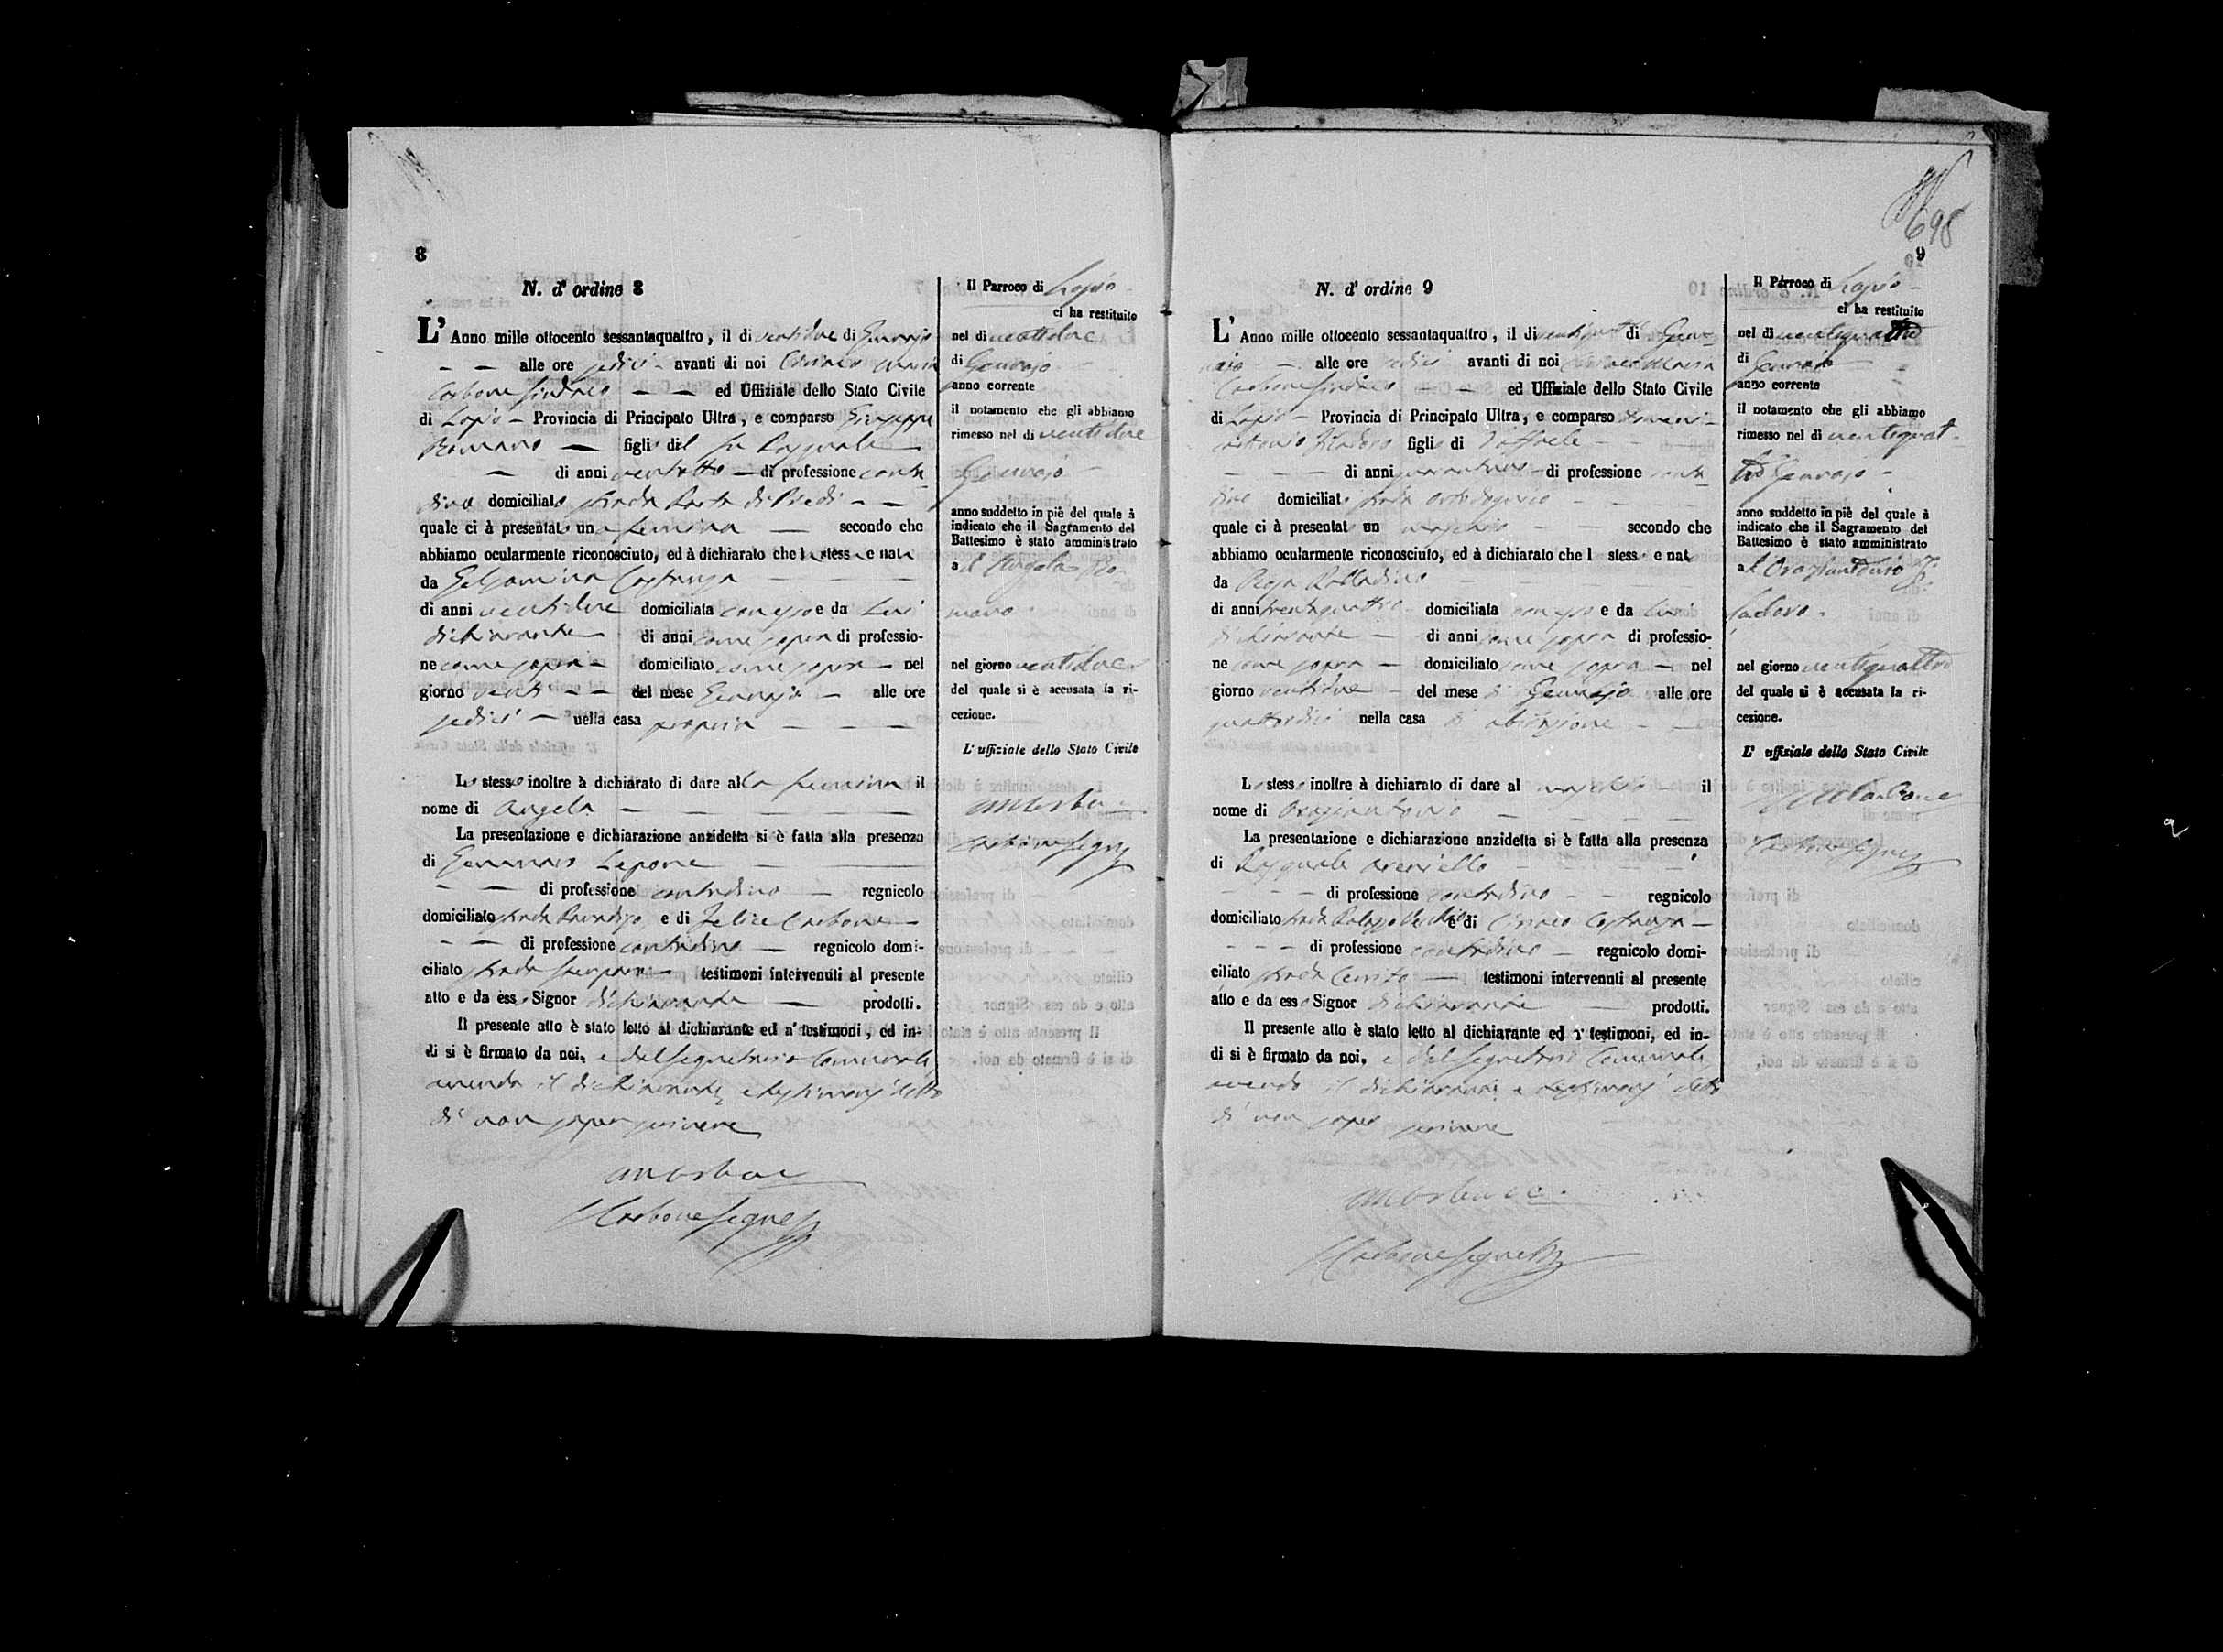 8
N. d' ordine 8
L' Anno mille ottocento sessantaquattro, il di ventidue di Gennajo
alle ore sedici avanti di noi Ciriaco Maria
Carbone Sindaco ed Uffiziale dello Stato Civile
di Lapio Provincia di Principato Ultra, e comparso Giuseppe
Romano figlio del fu Pasquale
di anni ventotto di professione conta
dino domiciliato strada Porta di Piedi
quale ci à presentato una femina secondo che
abbiamo ocularmente riconosciuto, ed à dichiarato che la stessa e nata
da Gelsomina Costanza
di anni ventidue domiciliata con esso e da lui
dichiarante di anni come sopra di professio-
ne come sopra domiciliato come sopra nel
giorno venti del mese Gennajo alle ore
sedici nella casa propria
Lo stesso inoltre à dichiarato di dare alla femina il
nome di Angela
La presentazione e dichiarazione anzidetta si è fatta alla presenza
di Gennaro Lepore
di professione contadino regnicolo
domiciliato strada e di Felice Carbone
di professione contadino regnicolo domi-
ciliato strada testimoni intervenuti al presente
atto e da esso Signor dichiarante prodotti.
Il presente atto è stato letto al dichiarante ed a' testimoni, ed in-
di si è firmato da noi, e dal Segretario Comunale
avendo il dichiarante e testimonj detto
di non saper scrivere
Carbone Segret
Il Parroco di Lapio
ci ha restituito
nel di ventidue
di Gennajo
anno corrente
il notamento che gli abbiamo
rimesso nel di ventidue
Gennajo
anno suddetto in piè del quale à
indicato che il Sagramento del
Battesimo è stato amministrato
a d Angela Ro
mano
nel giorno ventidue
del quale si è accusata la ri-
cezione.
L' uffiziale dello Stato Civile
Carbone Segr
698
9
N. d' ordine 9
L' Anno mille ottocento sessantaquattro, il di ventiquattro di Genn
ajo alle ore sedici avanti di noi Ciriaco Maria
Carbone Sindaco ed Uffiziale dello Stato Civile
di Lapio Provincia di Principato Ultra, e comparso Domenic
antonio figlio di Raffaele
di anni di professione conta
dino domiciliato strada
quale ci à presentato un maschio secondo che
abbiamo ocularmente riconosciuto, ed à dichiarato che l stesso e nat
da Rosa Palladino
di anni trentaquattro domiciliata con esso e da lui
dichiarante di anni come sopra di professio-
ne come sopra domiciliato come sopra nel
giorno ventidue del mese di Gennajo alle ore
quattordici nella casa di abitazione
Lo stesso inoltre à dichiarato di dare al maschio il
nome di Oraziantonio
La presentazione e dichiarazione anzidetta si è fatta alla presenza
di Pasquale
di professione contadino regnicolo
domiciliato strada Palazzo Vecchio e di Ciriaco Costanza
di professione contadino regnicolo domi-
ciliato strada Cerrito testimoni intervenuti al presente
atto e da esso Signor dichiarante prodotti.
Il presente atto è stato letto al dichiarante ed a' testimoni, ed in-
di si è firmato da noi, e dal Segretario Comunale
avendo il dichiarante e testimonj detto
di non saper scrivere
Carbone Segret
Il Parroco di Lapio
ci ha restituito
nel di ventiquattro
di Gennajo
anno corrente
il notamento che gli abbiamo
rimesso nel di ventiquat
tro Gennajo
anno suddetto in piè del quale à
indicato che il Sagramento del
Battesimo è stato amministrato
a d Oraziantonio
nel giorno ventiquattro
del quale si è accusata la ri-
cezione.
L' uffiziale dello Stato Civile
Carbone
Carbone Segr